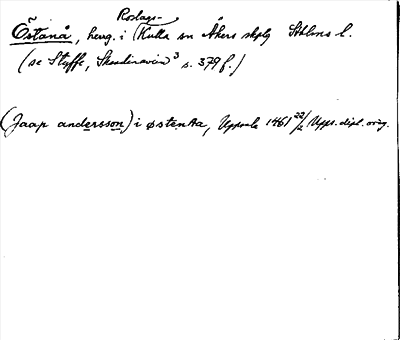 Östanå, herrg. i (Roslags-)Kulla sn Åkers skplg Sthlms l.
(se Styffe, Skandinavien³ s. 379 f.)
(Jaap andersson) i østenaa, Uppsala 1461 22/2 Upps. dipl. orig.